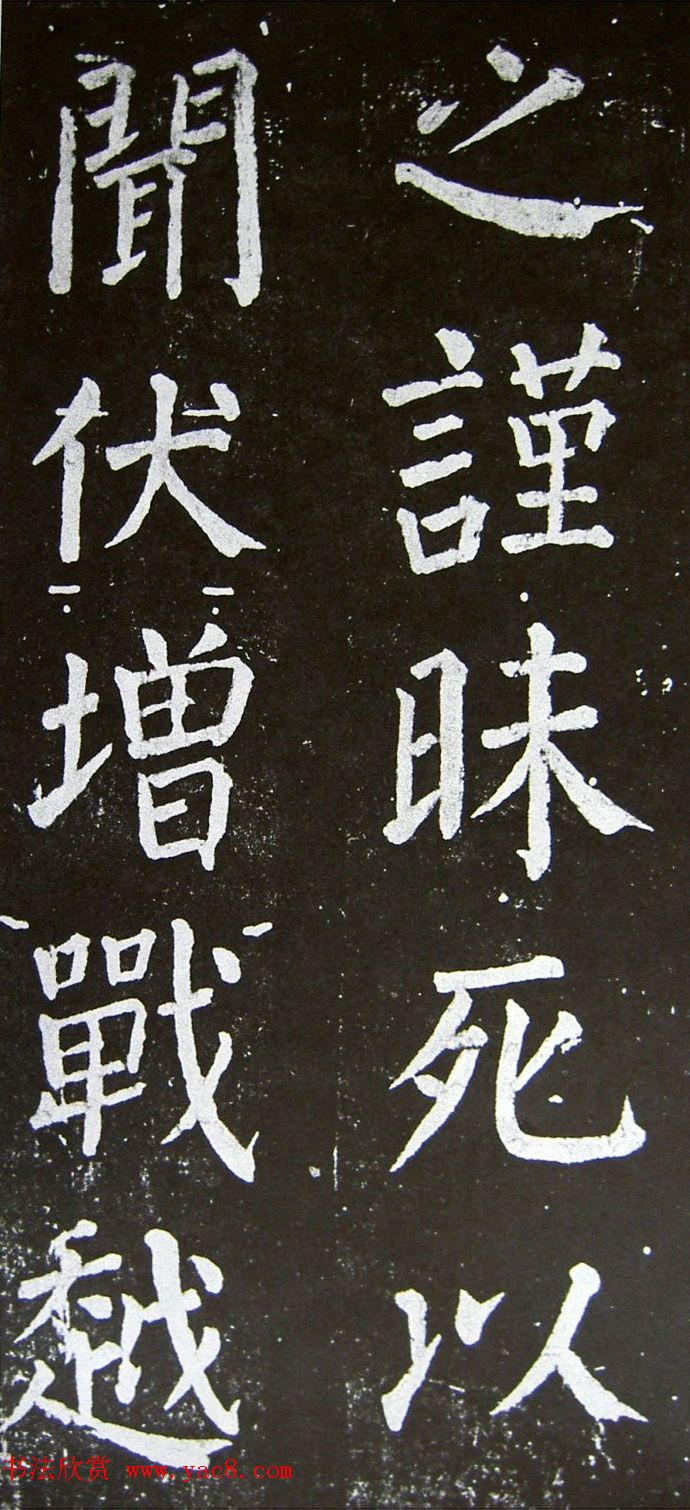 之謹昧死以
聞伏增戰越
书法欣赏 www.yac8.com